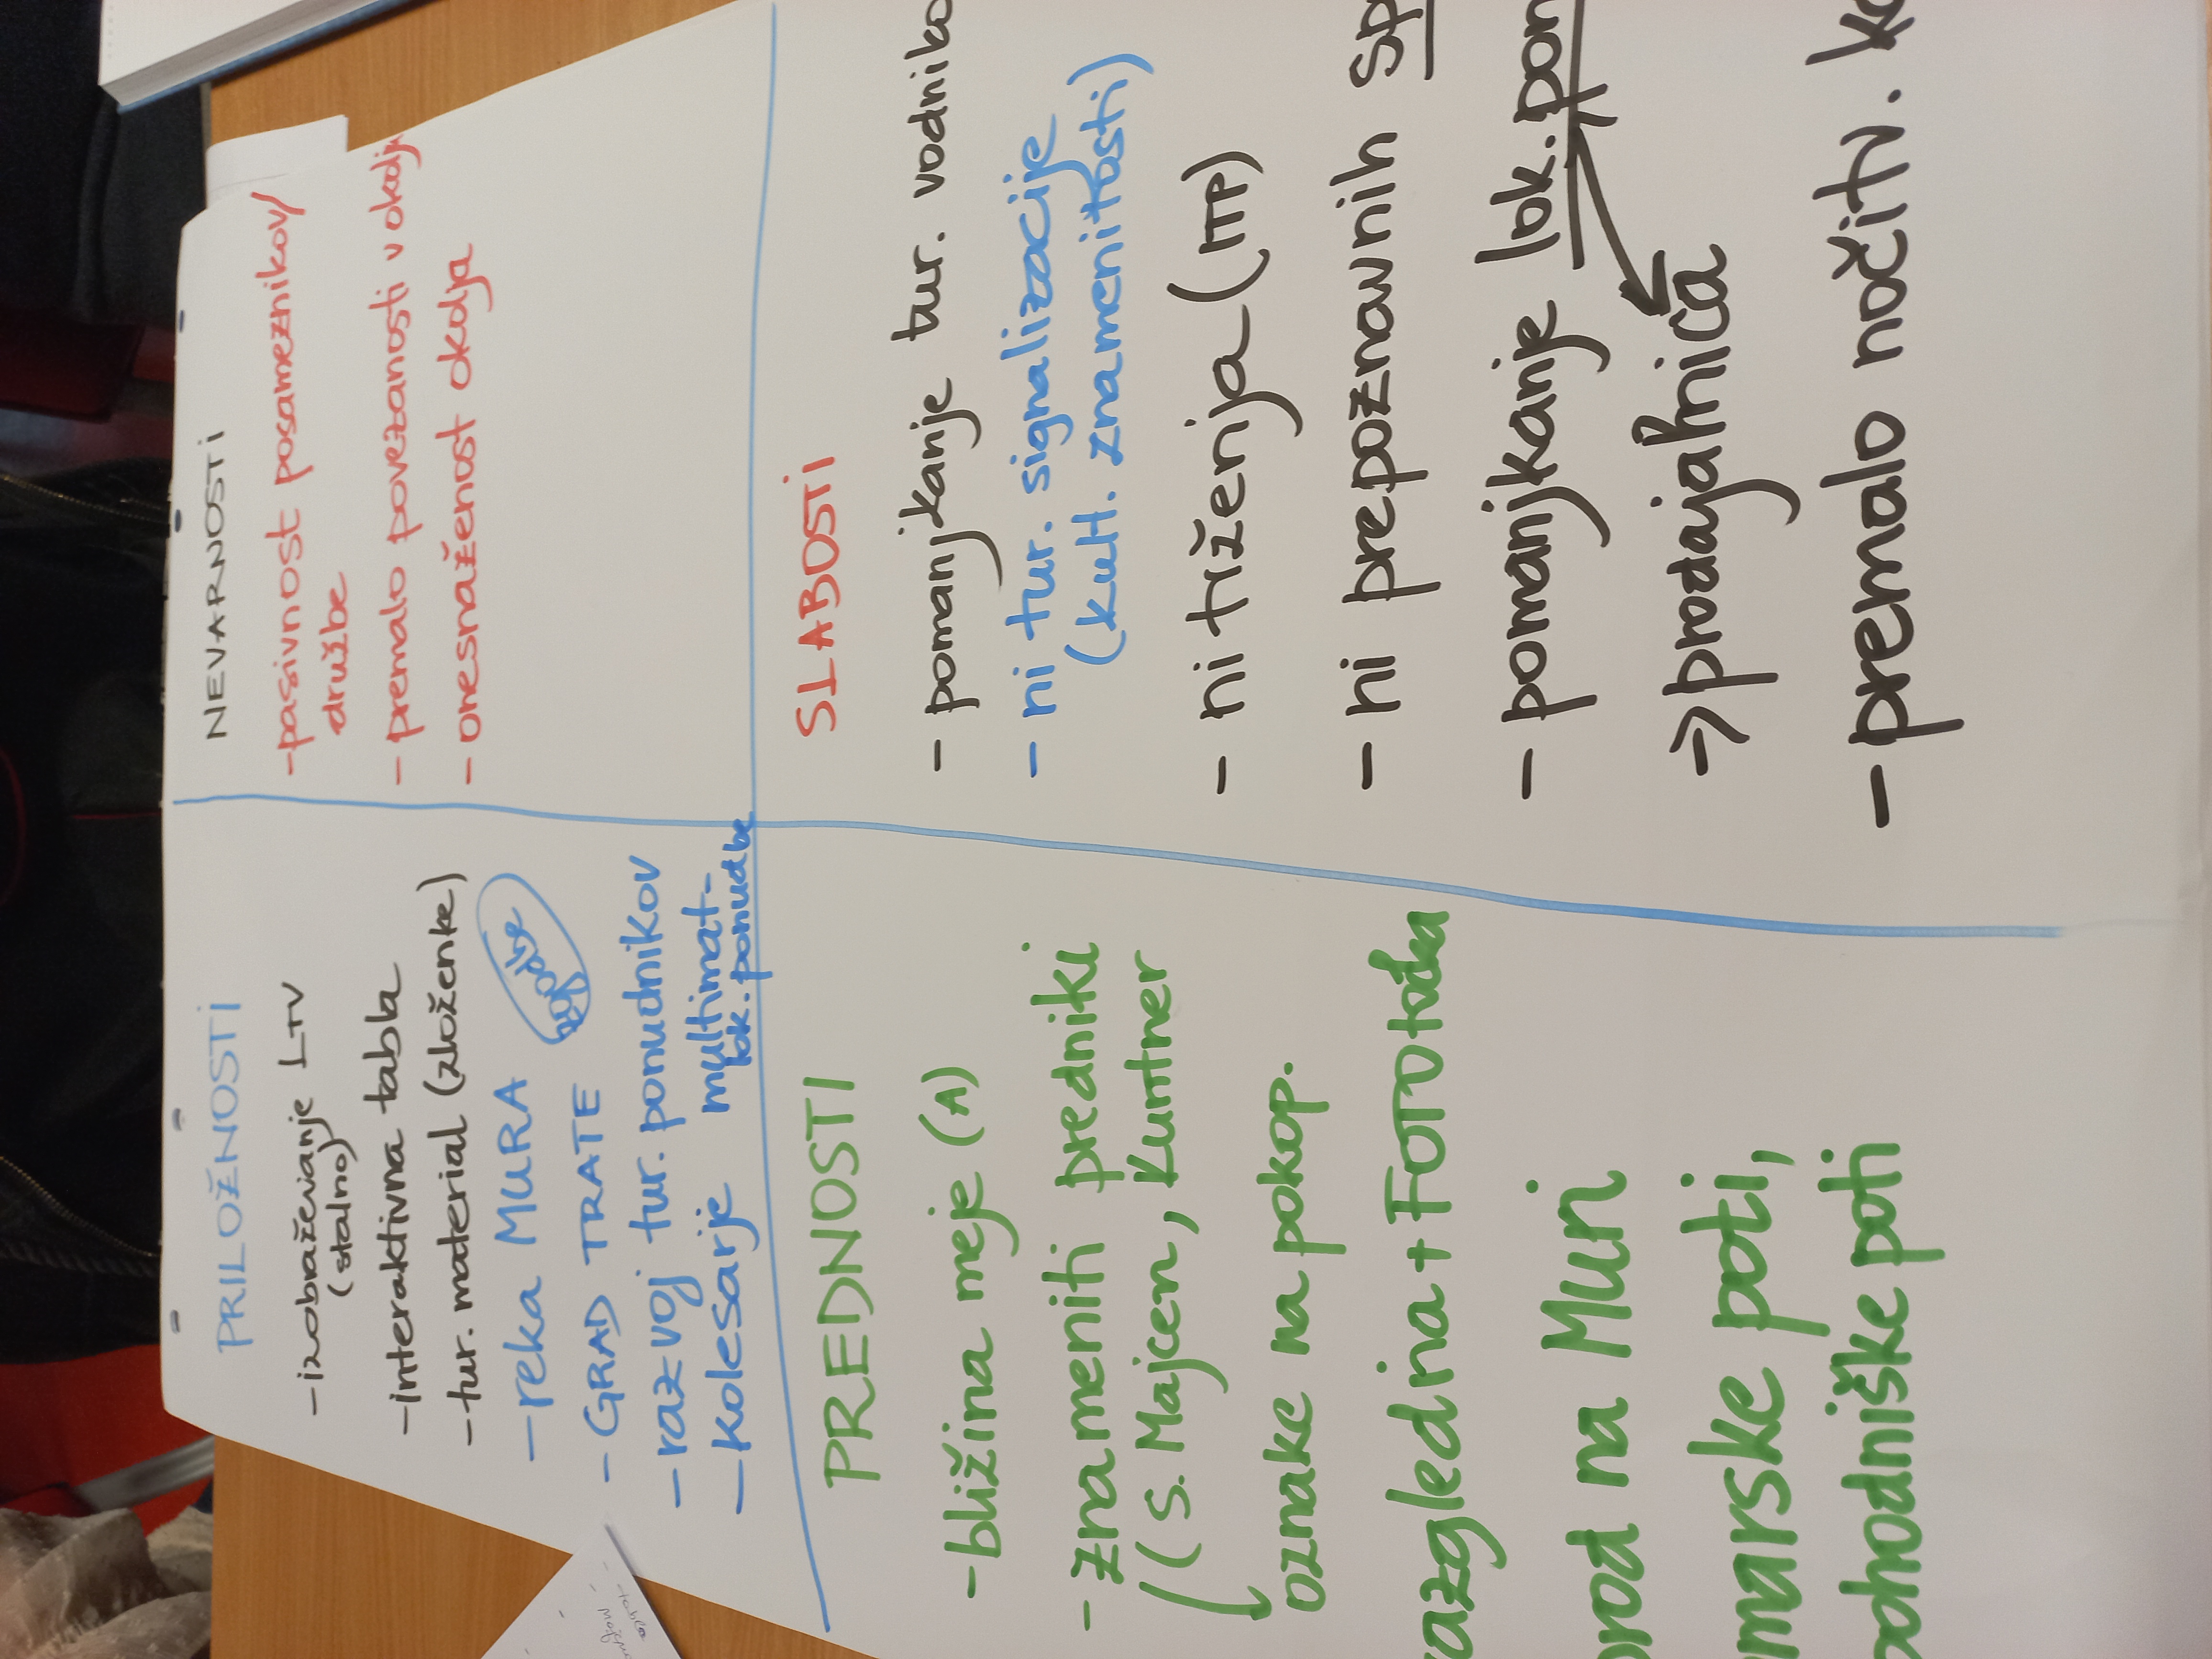 PRILOŽNOSTI
-izobraževanje LTV
(stalno)
-interaktivna tabla
-tur. material (zloženke)
-reka MURA
-GRAD TRATE
-razvoj tur. ponudnikov
-kolesarje
multimat-
lok. ponudbe
NEVARNOSTI
-pasivnost posameznikov/
družbe
- premalo povezanosti v okolj
- onesnaženost okolja
PREDNOSTI
-bližina meje (A)
-znameniti predniki
(s. Majcen, Kuntner
oznake na pokop.
azgledna + FOTO točka
rod na Muri
marske poti,
ohodniške poti
SLABOSTI
- pomanjkanje tur. vodniko
- ni tur. signalizacije
(kult. znamenitosti)
- ni trženja (ITP)
- ni prepoznavnih sp
- pomanjkanje lok. pon
→ prodajalnica
- premalo nočitv. ka
-tabla